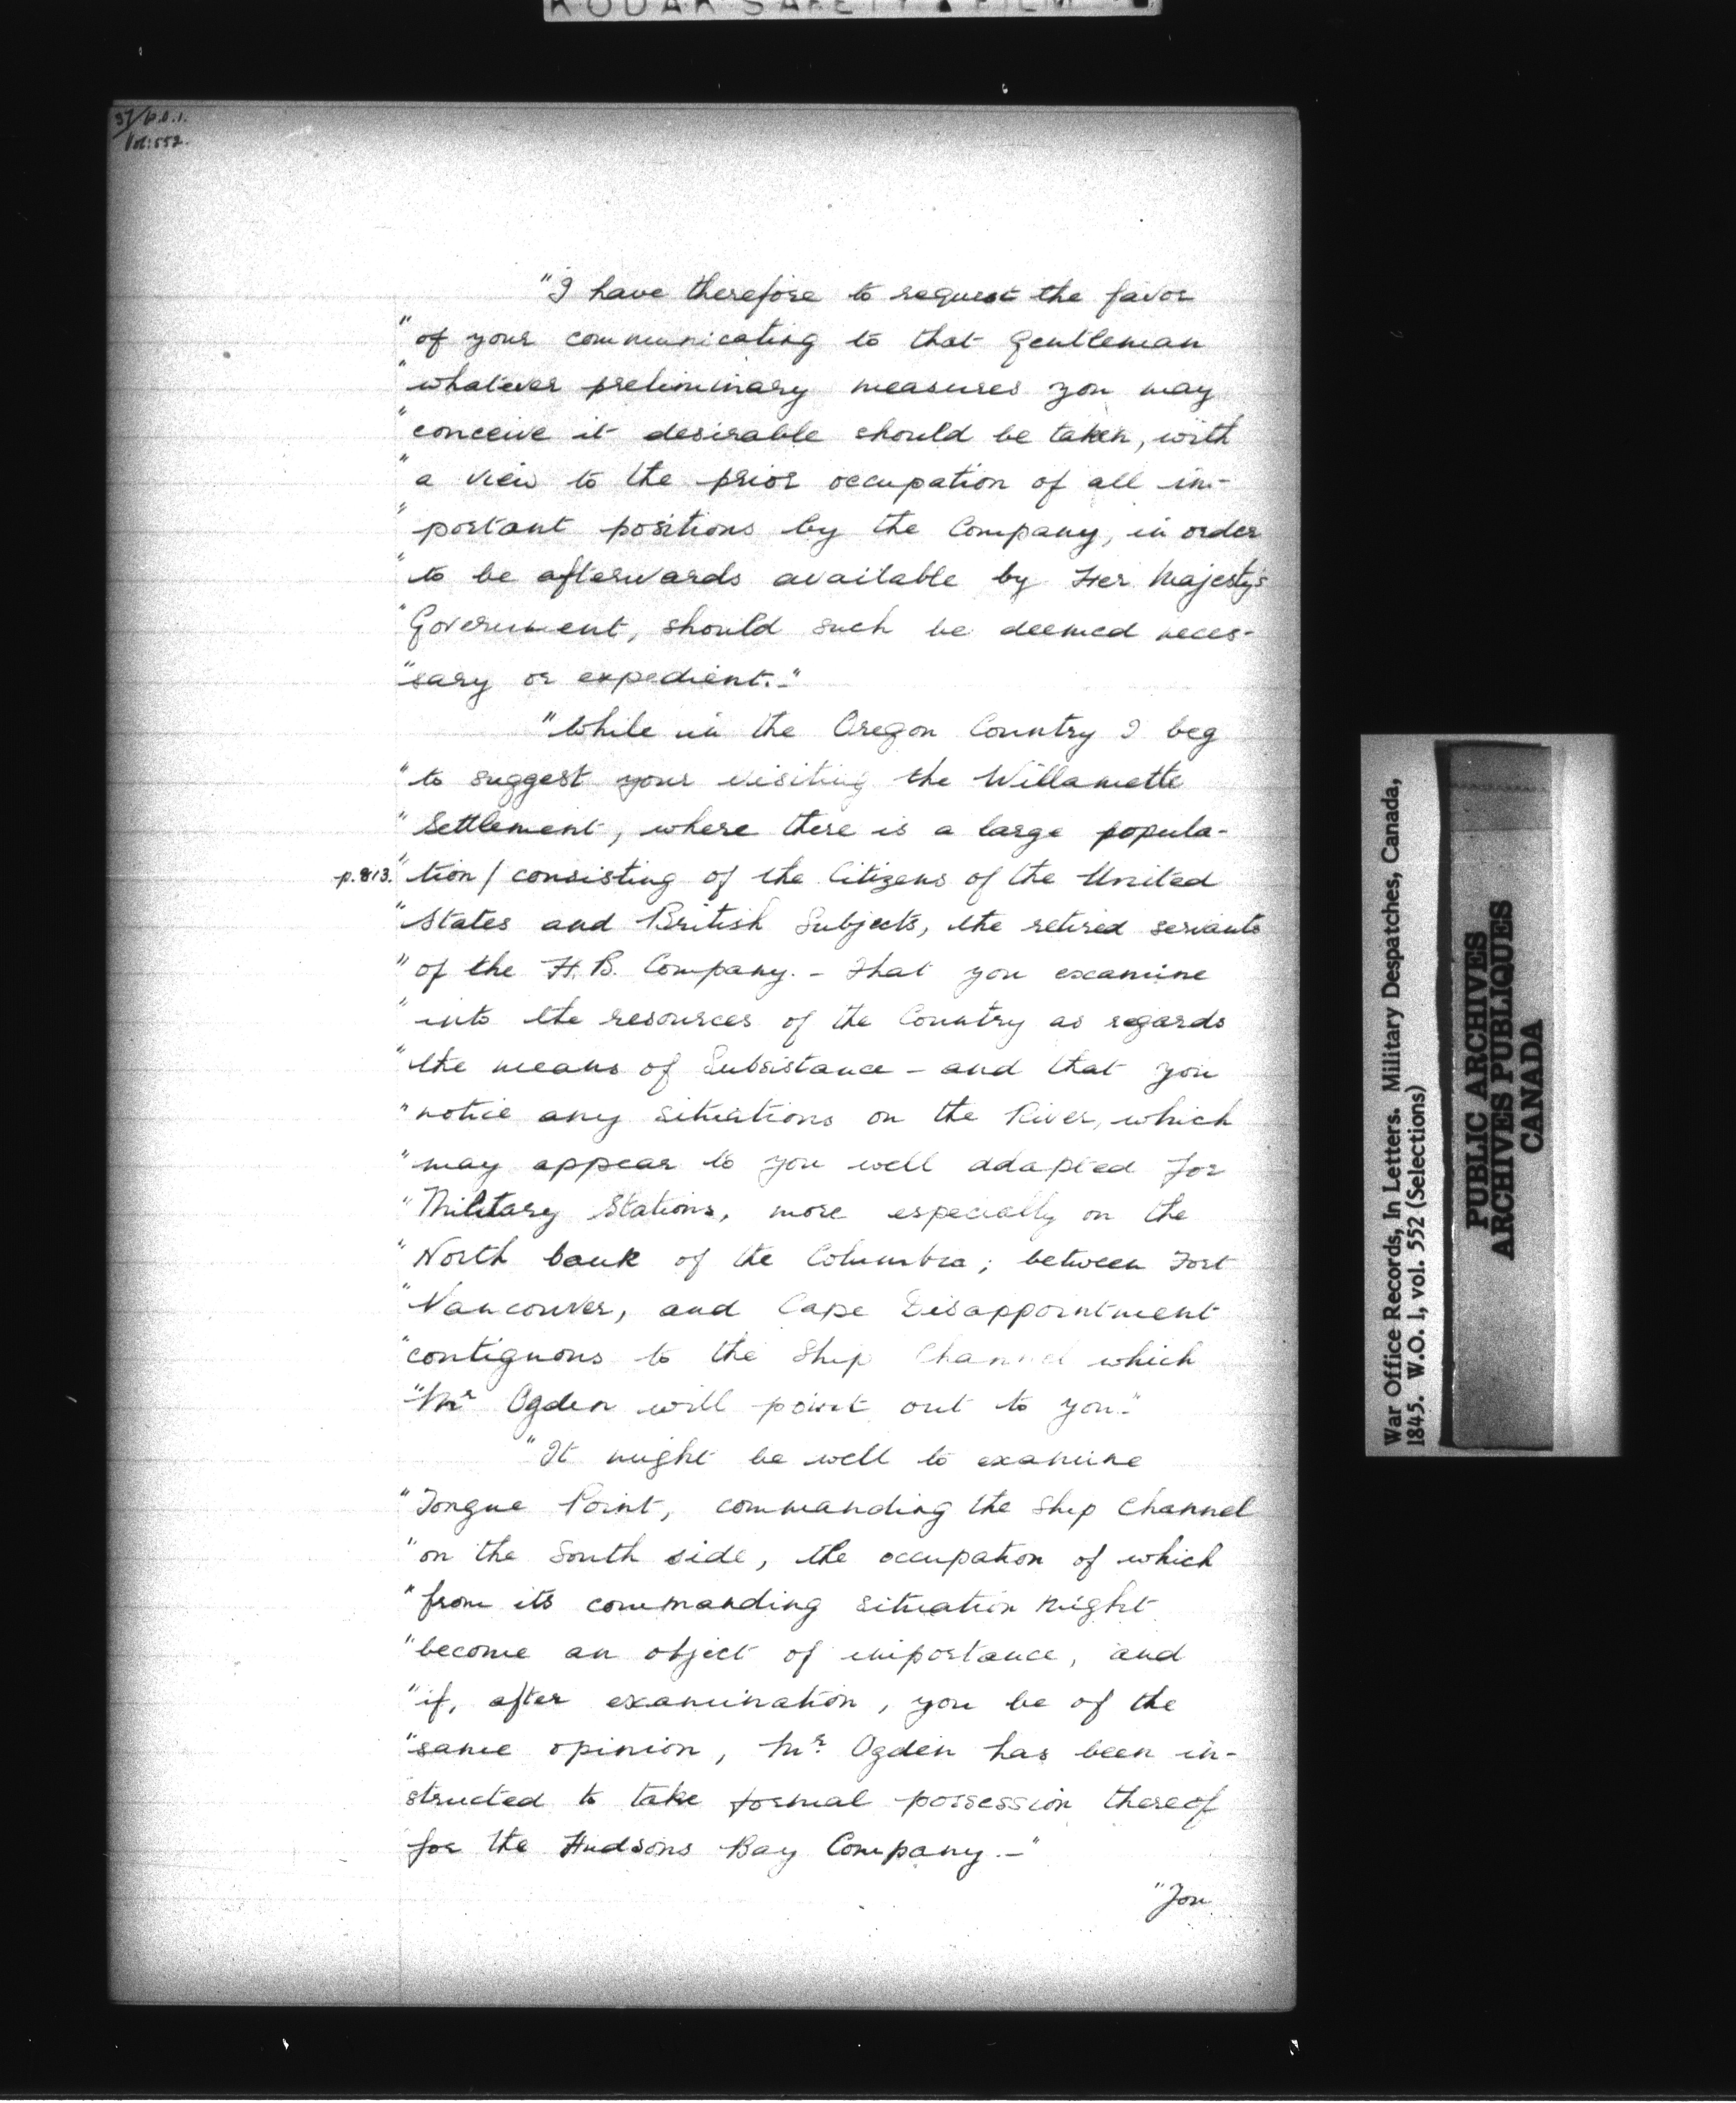 KODAK SAFETY FILM
37/W.O.1.
Vol: 552.
"I have therefore to request the favor
"of your communicating to that Gentleman
"whatever preliminary measures you may
"conceive it desirable should be taken, with
"a view to the prior occupation of all im-
"portant positions by the Company, in order
"to be afterwards available by Her Majesty's
"Government, should such be deemed neces-
"sary or expedient.-"
"While in the Oregon Country I beg
"to suggest your visiting the Willamette
"Settlement, where there is a large popula-
p.813. "tion / consisting of the Citizens of the United
"States and British Subjects, the retired servants
"of the H.B. Company. - That you examine
"into the resources of the Country as regards
"the means of Subsistance - and that you
"notice any situations on the River, which
"may appear to you well adapted for
"Military Stations, more especially on the
"North bank of the Columbia; between Fort
"Vancouver, and Cape Disappointment
"contiguous to the Ship Channel which
"Mr Ogden will point out to you."
"It might be well to examine
"Tongue Point, commanding the Ship Channel
"on the South side, the occupation of which
"from its commanding situation might
"become an object of importance, and
"if, after examination, you be of the
"same opinion, Mr. Ogden has been in-
structed to take formal possession thereof
for the Hudsons Bay Company.-"
"You
War Office Records, In Letters. Military Despatches, Canada,
1845. W.O. 1, vol. 552 (Selections)
PUBLIC ARCHIVES
ARCHIVES PUBLIQUES
CANADA